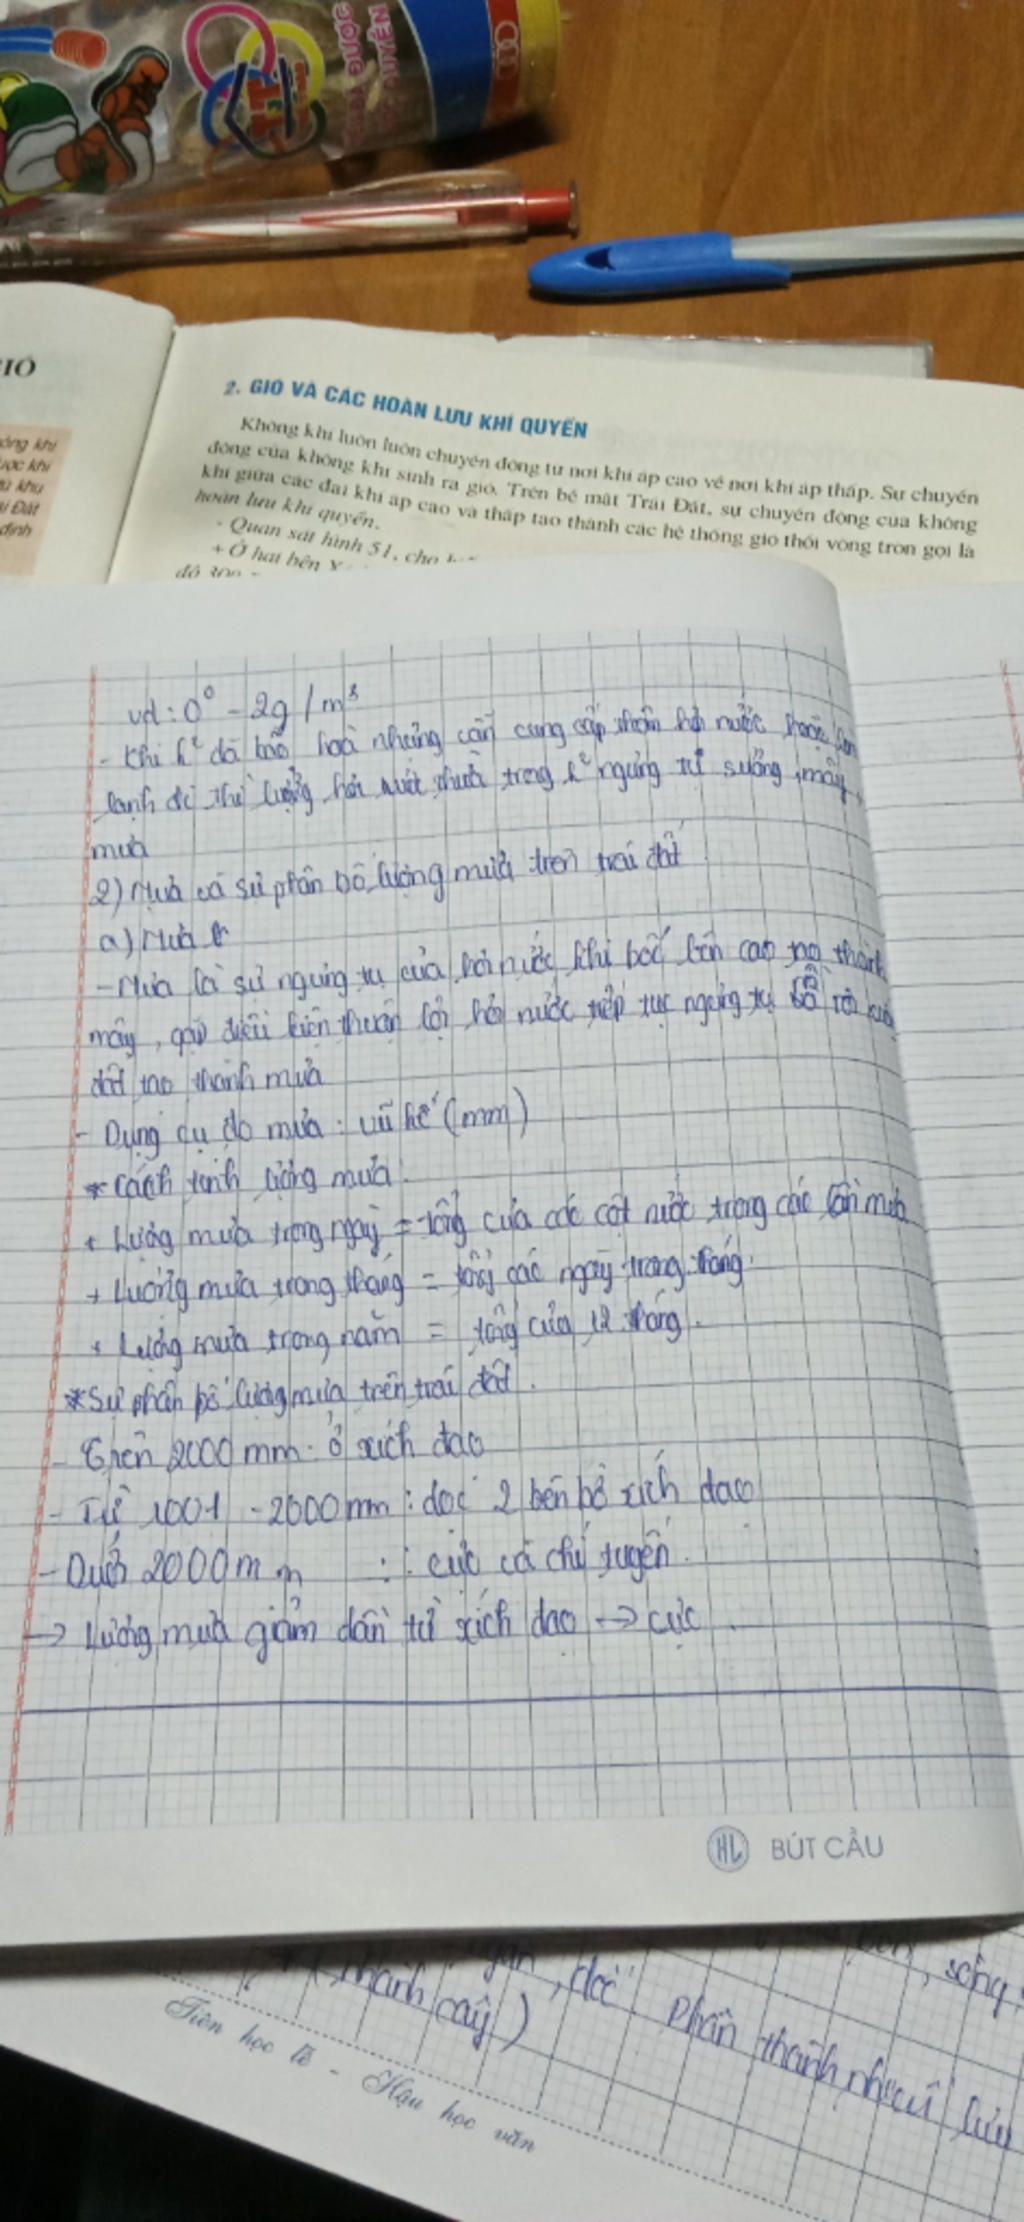 CHA ĐƯỢC
ĐỘC QUYỀN
IÓ
2. GIÓ VÀ CÁC HOÀN LƯU KHÍ QUYỂN
Không khí luôn luôn chuyển động từ nơi khí áp cao về nơi khí áp thấp. Sự chuyển
động của không khí sinh ra gió. Trên bề mặt Trái Đất, sự chuyển động của không
khí giữa các đai khí áp cao và thấp tạo thành các hệ thống gió thổi vòng tròn gọi là
hoàn lưu khí quyển.
- Quan sát hình 51, cho
+ Ở hai bên X
độ 30o
ông khí
ược khí
từ khu
ái Đất
định
vd : 0° - 2g / m³
- Khi k² đã bão hoà nhưng cần cung cấp thêm hơi nước hoặc
lạnh đi thì lượng hơi nước thừa trong k² ngưng tụ sương, mây,
mưa
2) Mưa và sự phân bố lượng mưa trên trái đất
a) Mưa
- Mưa là sự ngưng tụ của hơi nước khi bốc lên cao thành
mây, gặp điều kiện thuận lợi hơi nước tiếp tục ngưng tụ rơi
đất tạo thành mưa
- Dụng cụ đo mưa : vũ kế (mm)
* Cách tính lượng mưa :
+ Lượng mưa trong ngày = tổng của các cột nước trong các lần mưa
+ Lượng mưa trong tháng = tổng các ngày trong tháng.
+ Lượng mưa trong năm = tổng của 12 tháng.
* Sự phân bố lượng mưa trên trái đất.
- Trên 2000 mm : ở xích đạo
- Từ 1001 - 2000 mm : dọc 2 bên bờ xích đạo
- Dưới 2000 mm : cực và chí tuyến.
→ Lượng mưa giảm dần từ xích đạo → cực
HL BÚT CẦU
gân, dọc
, sông
(nhánh cây)
phần thành nhiều
Tiên học lễ - Hậu học văn